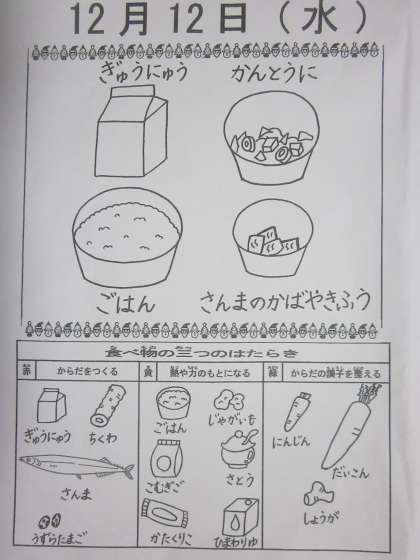 12月12日(水)
ぎゅうにゅう かんとうに
ごはん さんまのかばやきふう
食べ物の三つのはたらき
赤 からだをつくる 黄 熱や力のもとになる 緑 からだの調子を整える
ぎゅうにゅう ちくわ
さんま
うずらたまご
ごはん じゃがいも
こむぎこ さとう
かたくりこ ひまわりゆ
にんじん だいこん
しょうが